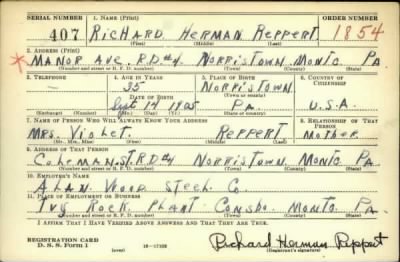 SERIAL NUMBER 1. NAME (Print) ORDER NUMBER
407 RICHARD HERMAN REPPERT 1854
(First) (Middle) (Last)
2. ADDRESS (Print)
* MANOR AVE. R.D#4 NORRISTOWN MONTG PA.
(Number and street or R. F. D. number) (Town) (County) (State)
3. TELEPHONE 4. AGE IN YEARS 5. PLACE OF BIRTH 6. COUNTRY OF CITIZENSHIP
35 NORRISTOWN
DATE OF BIRTH (Town or county)
Sept 14 1905 PA. U.S.A.
(Mo.) (Day) (Yr.) (State or country)
7. NAME OF PERSON WHO WILL ALWAYS KNOW YOUR ADDRESS 8. RELATIONSHIP OF THAT PERSON
MRS. Violet REPPERT Mother
(Mr., Mrs., Miss) (First) (Middle) (Last)
9. ADDRESS OF THAT PERSON
COLEMAN ST. R.D#4 NORRISTOWN MONTG PA.
(Number and street or R. F. D. number) (Town) (County) (State)
10. EMPLOYER'S NAME
ALAN WOOD STEEL CO.
11. PLACE OF EMPLOYMENT OR BUSINESS
IVY ROCK PLANT CONSHO. MONTG. PA.
(Number and street or R. F. D. number) (Town) (County) (State)
I AFFIRM THAT I HAVE VERIFIED ABOVE ANSWERS AND THAT THEY ARE TRUE.
REGISTRATION CARD
D. S. S. Form 1 (over) Richard Herman Reppert
(Registrant's signature)